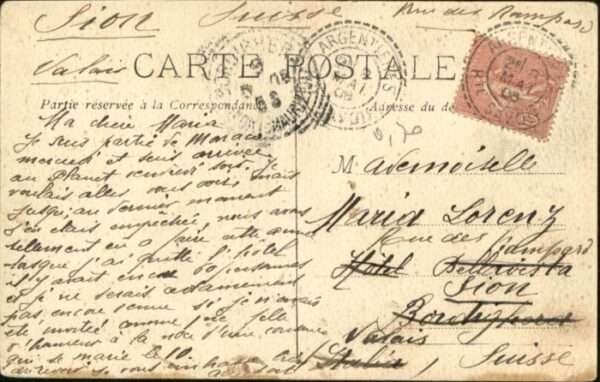 Sion Suisse Rue des Rampard
Valais
CARTE POSTALE
Partie réservée à la Correspondance
ARGENTIÈRE
MAI
Hte SAVOIE
0,20
Ma chère Maria
Je suis partie de Monaco
mercredi et suis arrivée
au Planet vendredi soir. Je
voulais aller vous voir mais
jusqu'au dernier moment
j'en étais empêchée nous avons
tellement eu à faire cette année
lorsque j'ai quitté l'hôtel
il y avait encore 60 personnes
et je ne serais certainement
pas encore venue si je n'avais
été invitée comme fille
d'honneur à la noce d'une cousine
qui se marie le 10.
au revoir Je vous embrasse
Mademoiselle
Maria Lorenz
Rue des Rampard
Hôtel Bellavista
Sion
Bordighera
Valais
Italia, Suisse